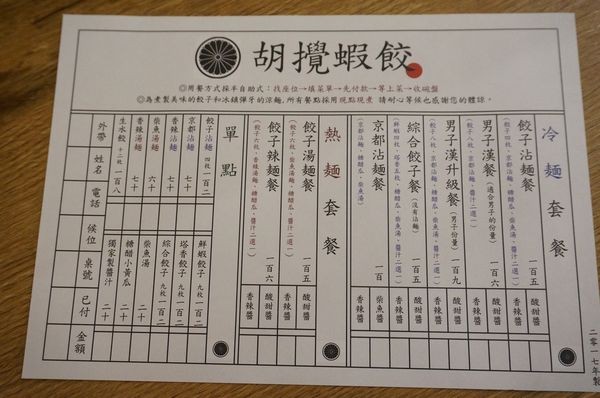 胡攪蝦餃
◎用餐方式採半自助式:找座位→填菜單→先付款→等上菜→收碗盤
◎為煮製美味的餃子和冰鎮彈牙的涼麵,所有餐點採用現點現煮 請耐心等候也感謝您的體諒。
冷麵套餐
餃子沾麵餐 一百五
酸甜醬
香辣醬
男子漢餐(適合男子的份量) 一百六
酸甜醬
香辣醬
男子漢升級餐(男子份量) 一百九
酸甜醬
香辣醬
綜合餃子餐(沒有沾麵) 一百五
酸甜醬
香辣醬
京都沾麵餐 一百
柴魚醬
香辣醬
熱麵套餐
餃子湯麵餐 一百五
酸甜醬
香辣醬
餃子辣麵餐 一百六
酸甜醬
香辣醬
單點
餃子沾麵 四枚一百二
鮮蝦餃子 九枚一百二
京都沾麵 七十
塔香餃子 九枚一百二
香辣沾麵 七十
綜合餃子 九枚一百二
柴魚湯麵 六十
柴魚湯 二十
香辣湯麵 七十
糖醋小黃瓜 二十
生水餃 十二枚一百八
獨家製醬汁 二十
外帶
姓名 電話 候位 桌號 已付 金額
二零一七年製